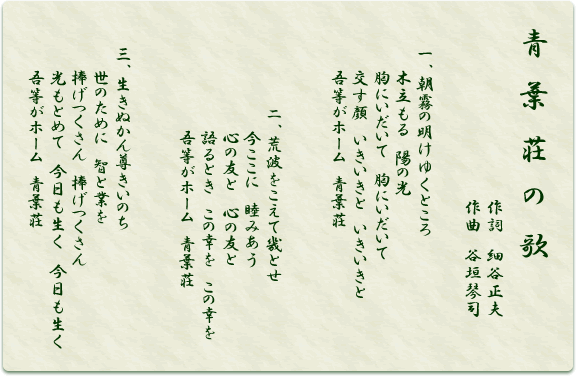 青葉荘の歌
作詞　細谷正夫
作曲　谷垣琴司
一、朝霧の明けゆくところ
木立もる　陽の光
胸にいだいて　胸にいだいて
交す顔　いきいきと　いきいきと
吾等がホーム　青葉荘
二、荒波をこえて幾とせ
今ここに　睦みあう
心の友と　心の友と
語るとき　この幸を　この幸を
吾等がホーム　青葉荘
三、生きぬかん尊きいのち
世のために　智と業を
捧げつくさん　捧げつくさん
光もとめて　今日も生く　今日も生く
吾等がホーム　青葉荘